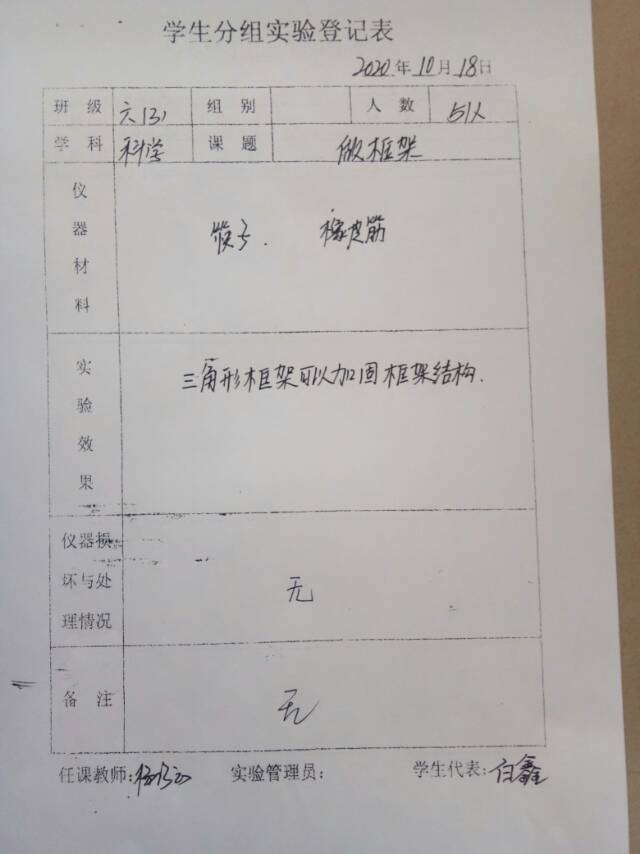 学生分组实验登记表
2020年10月18日
班级 六(3) 组别 人数 51人
学科 科学 课题 做框架
仪器材料 筷子. 橡皮筋
实验效果 三角形框架可以加固框架结构.
仪器损坏与处理情况 无
备注 无
任课教师: 实验管理员: 学生代表:白鑫